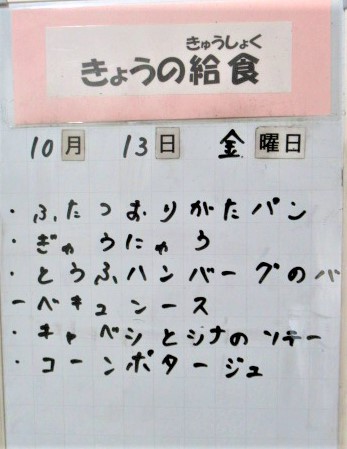 きゅうしょく
きょうの給食
10月 13日 金曜日
・ふたつおりがたパン
・ぎゅうにゅう
・とうふハンバーグのバ
ーベキューソース
・キャベツとツナのソテー
・コーンポタージュ